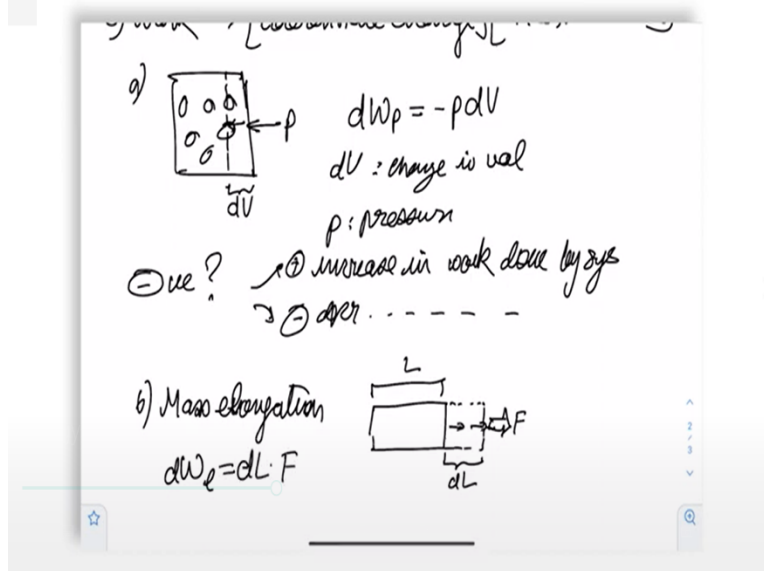 a)
p
dWp = -pdV
dV : change in vol
dV
p : pressure
⊖ve? → ⊕ increase in work done by sys
→ ⊖ - - - - -
b) Mass elongation
L
F
dWe = dL · F
dL
2
/
3